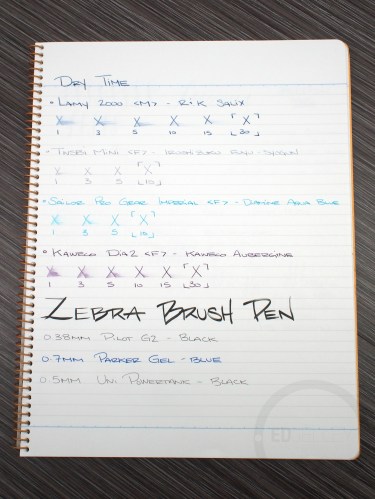 DRY TIME
• LAMY 2000 <M> - R+K SALIX
X X X X X X
1 3 5 10 15 30
• TWSBI MINI <F> -
X X X X
1 3 5 10
• SAILOR PRO GEAR IMPERIAL <F> - DIAMINE AQUA BLUE
X X X X
1 3 5 10
• KAWECO DIA2 <F> - KAWECO AUBERGINE
X X X X X X
1 3 5 10 15 30
ZEBRA BRUSH PEN
0.38MM PILOT G2 - BLACK
0.7MM PARKER GEL - BLUE
0.5MM UNI POWERTANK - BLACK
ED